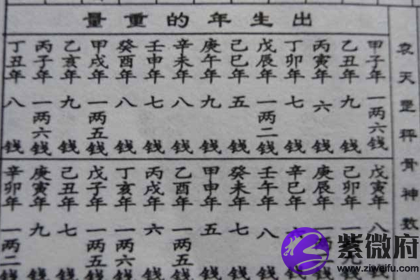 出生年的重量
袁天罡秤骨神數
甲子年 一两六錢
乙丑年 九錢
丙寅年 六錢
丁卯年 七錢
戊辰年 一两二錢
己巳年 五錢
庚午年 九錢
辛未年 八錢
壬申年 七錢
癸酉年 八錢
甲戌年 一两五錢
乙亥年 九錢
丙子年 一两六錢
丁丑年 八錢
戊寅年
己卯年
庚辰年
辛巳年
壬午年
癸未年 七
甲申年 五
乙酉年 一两五
丙戌年 六
丁亥年 一两六
戊子年 一两五
己丑年 七
庚寅年 九
辛卯年 一两二
紫微府
www.ziweifu.com